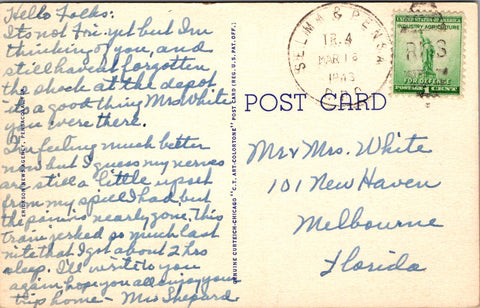 Hello Folks:
It's not Fri. yet but I'm
thinking of you, and
still haven't forgotten
the shock at the depot
its a good thing Mrs White
you were there.
I'm feeling much better
now but I guess my nerves
are still a little upset
from my spill I had, but
the pain is nearly gone. This
train jerked so much last
nite that I got about 2 hrs
sleep. I'll write to you
again hope you all enjoy your
trip home - Mrs Shepard
GENUINE CURTEICH-CHICAGO "C.T. ART-COLORTONE" POST CARD (REG. U.S. PAT. OFF.)
SELMA & PENSA
TR. 4
MAR 18
1943
R.P.O.
RMS
UNITED STATES OF AMERICA
INDUSTRY AGRICULTURE
FOR DEFENSE
1 CENT
POST CARD
Mr & Mrs. White
101 New Haven
Melbourne
Florida